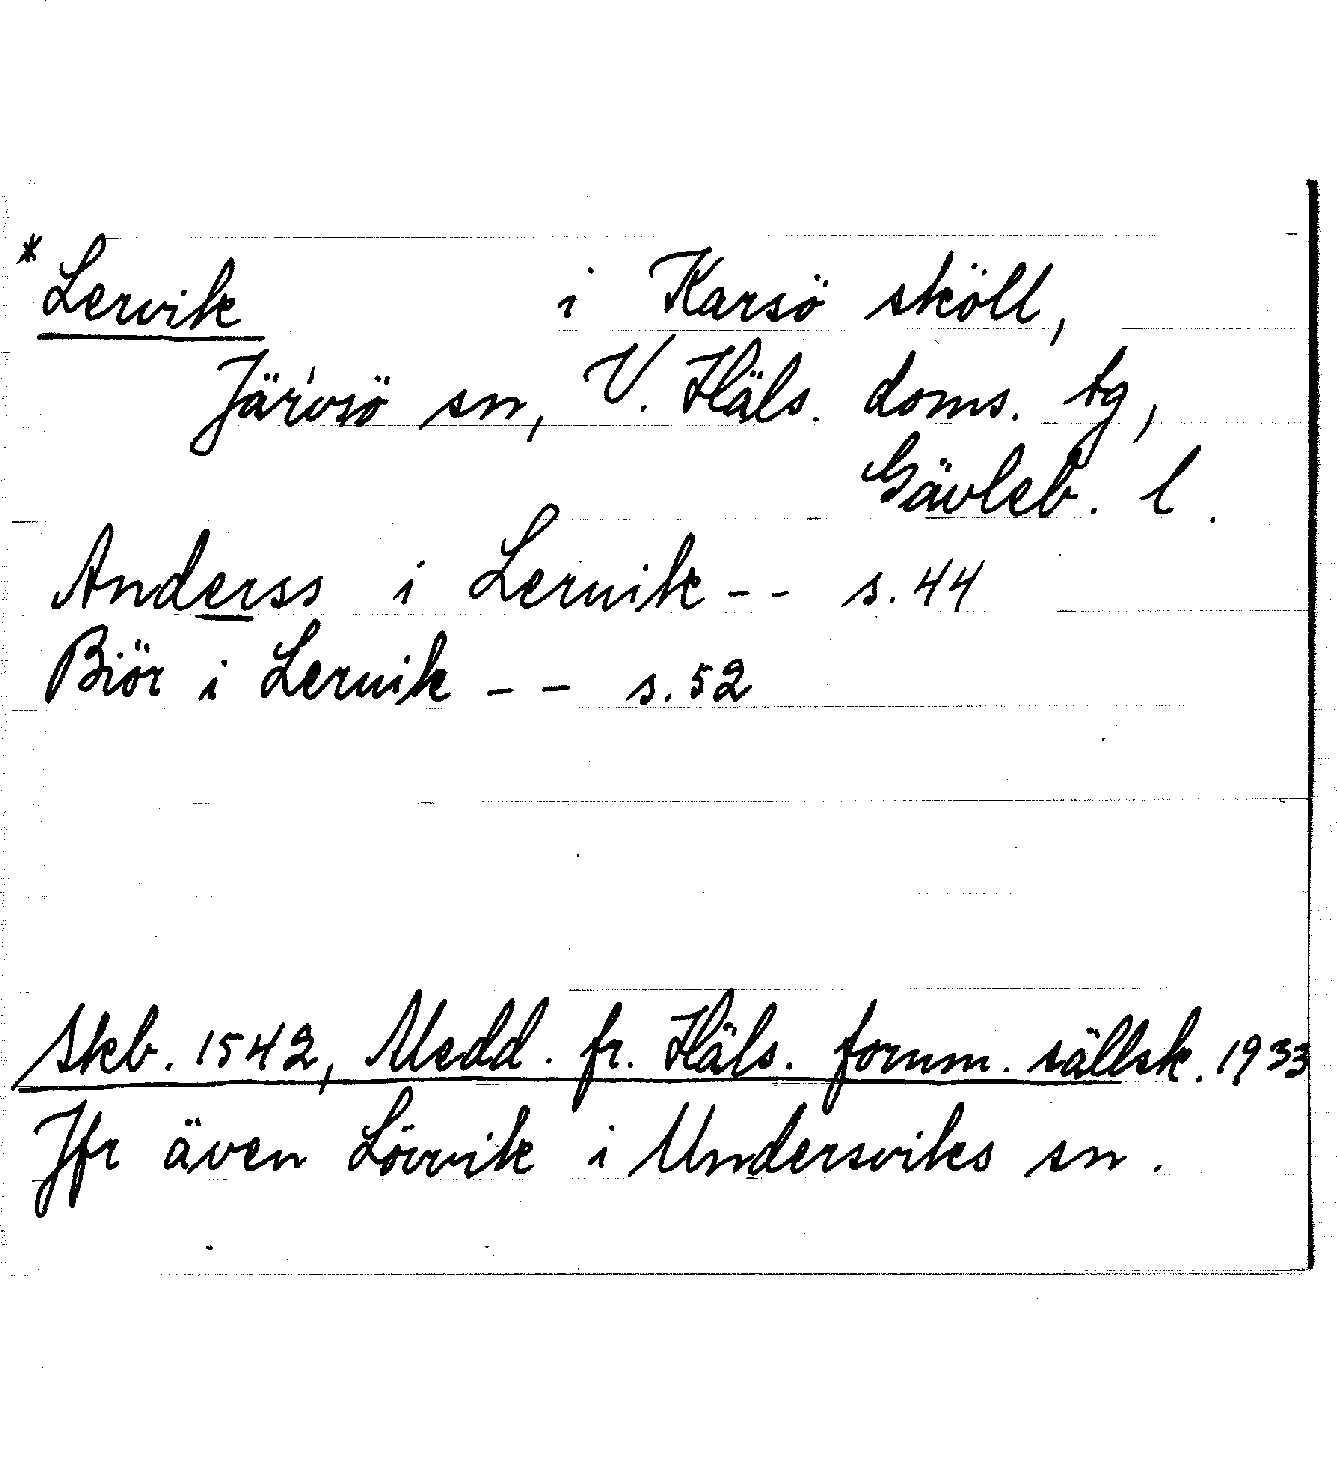 * Lervik i Karsö sköll,
Järvsö sn, V. Häls. doms. tg,
Gävleb. l.
Anderss i Leruik -- s. 44
Biör i Leruik -- s. 52
Skb. 1542, Medd. fr. Häls. fornm. sällsk. 1933
Jfr även Lövvik i Undersviks sn.